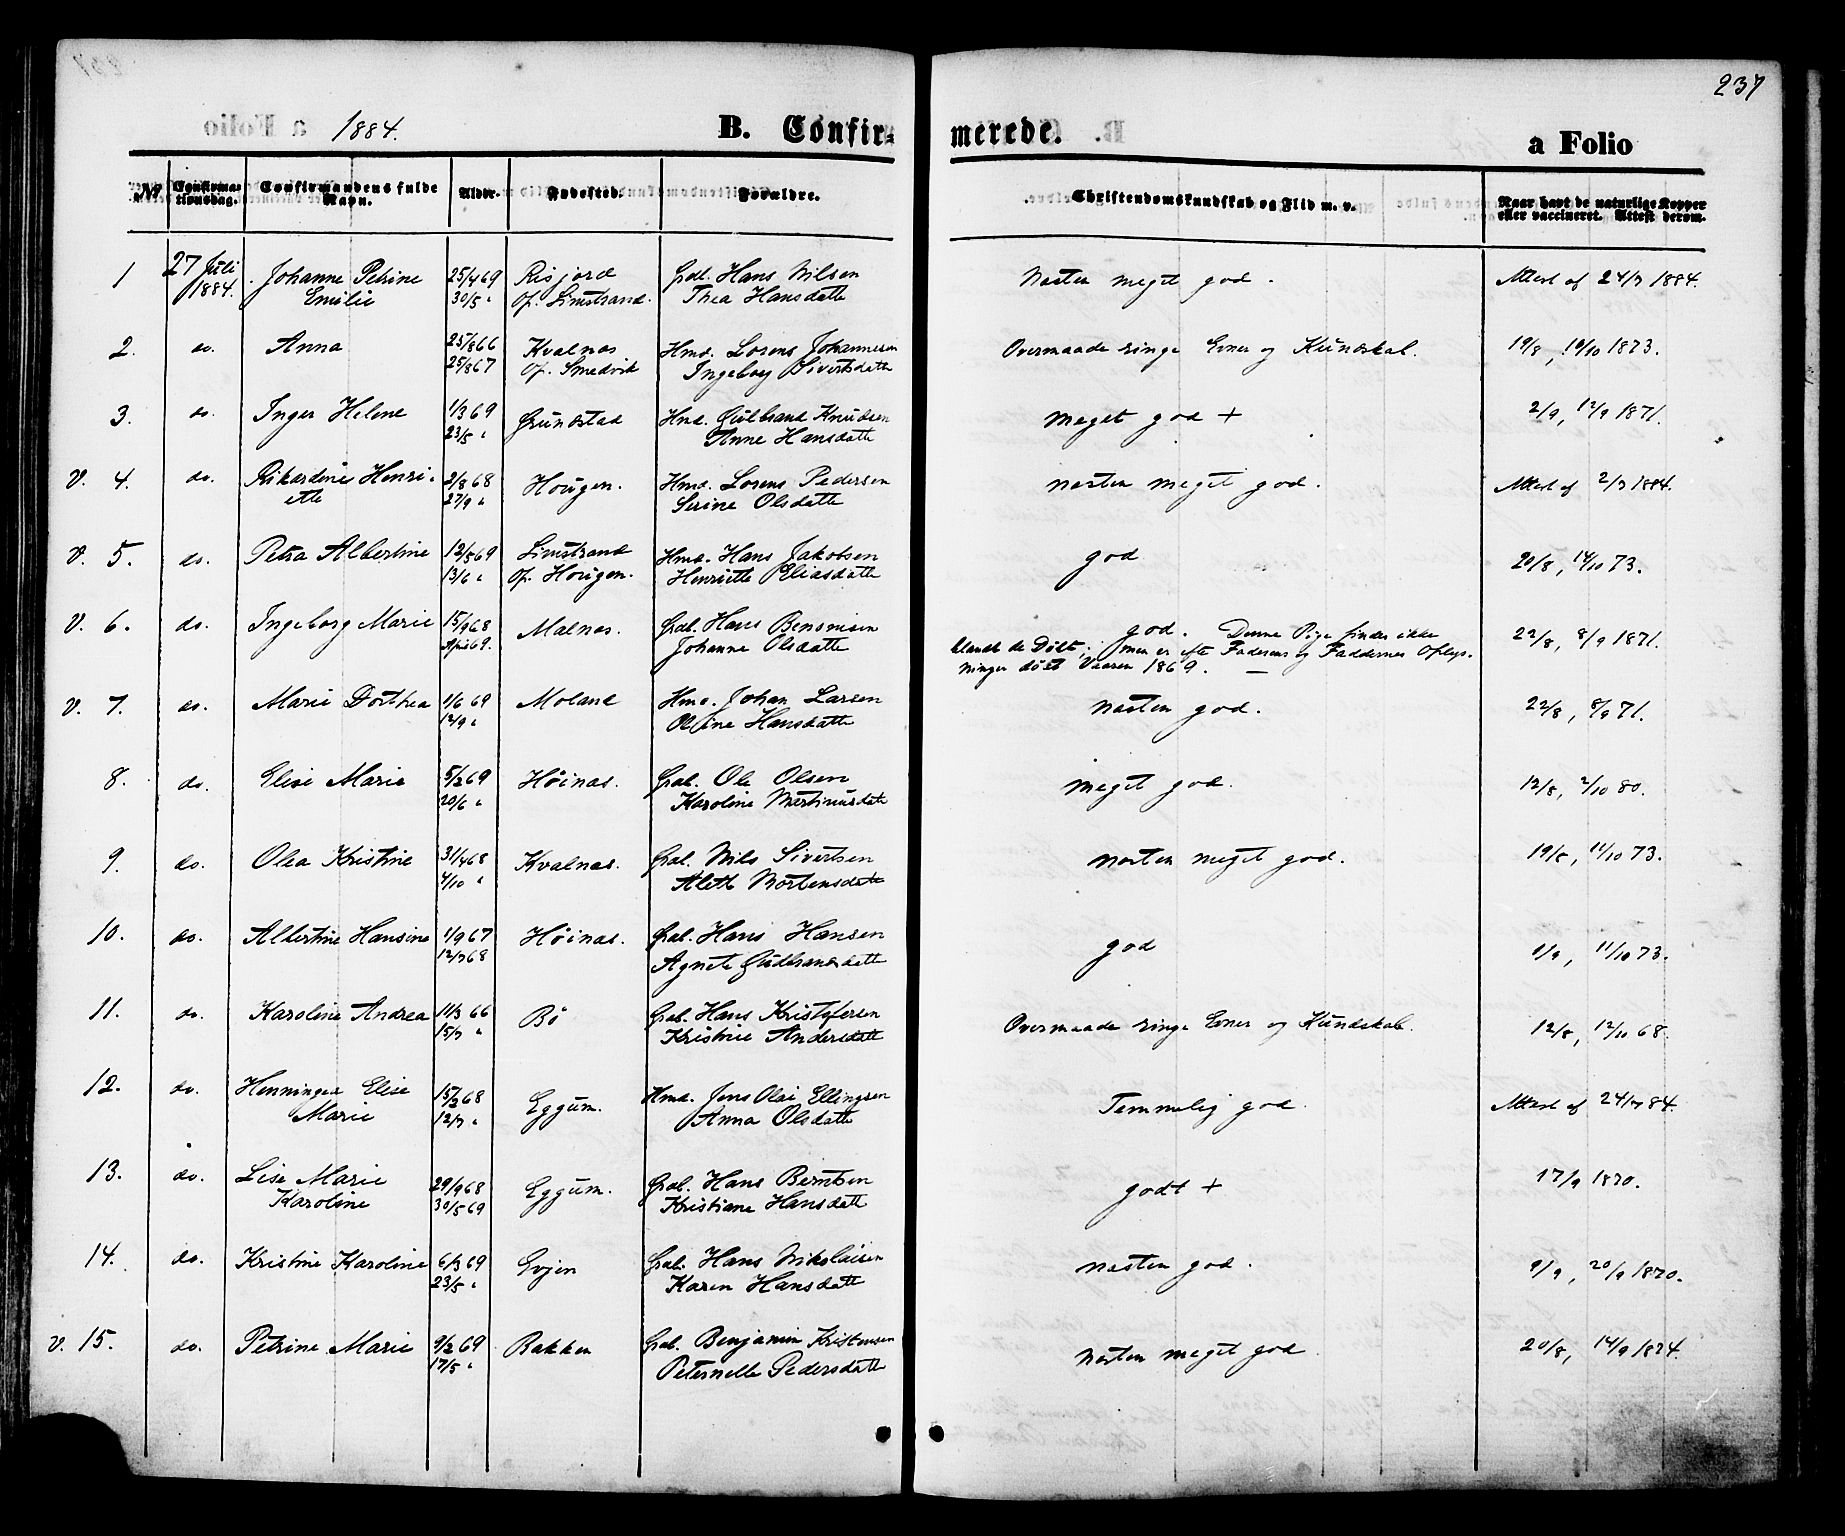 237
1884. B. Confir- merede. a Folio
№ Confirma- tionsdag. Confirmandens fulde Navn. Alder. Fødested. Forældre. Christendomskundskab og Flid m. v. Naar havt de naturlige Kopper eller vaccineret. Attest derom.
1 27 Juli Johanne Petrine 25/4 69 Risjord Gbd. Hans Nilsen Næsten meget god. Attest af 24/7 1884.
1884. Emilie 30/5 " Op. Limstrand. Thea Hansdatte
2. do. Anna 25/8 66 Kvalnæs Hmd. Lorens Johannesen Overmaade ringe Evner og Kundskab. 19/8, 19/10 1873.
25/8 67 Op. Smedvik Ingeborg Sivertsdatte
3. do. Inger Helene 1/3 69 Grundstad Hmd. Gulbrand Knudsen Meget god + 2/9, 12/9 1871.
23/5 " Anne Hansdatte
V. 4. do. Rikardine Henri- 2/8 68 Hougen. Hmd. Lorens Pedersen næsten meget god. Attest af 2/7 1884.
ette 27/9 " Serine Olsdatte
V. 5. do. Petra Albertine 12/5 69 Limstrand Hmd. Hans Jakobsen god 20/8, 14/10 73.
13/6 " Op. Hougen. Henriette Eliasdatte
V. 6. do. Ingeborg Marie 15/9 68 Malnæs. Gbd. Hans Bensvisen god. Denne Pige findes ikke 22/8, 8/9 1871.
April 69. Johanne Olsdatte blandt de Døbte, men er eft Faderens og Faddernes Oplys-
ninger døbt Vaaren 1869. —
V. 7. do. Marie Dorthea 1/6 69 Moland Hmd. Johan Larsen Næsten god. 22/8, 8/9 71.
12/9 " Oline Hansdatte
8. do. Elise Marie 5/2 69 Høinæs. Gbd. Ole Olsen Meget god. 12/8, 2/10 80.
20/6 " Karoline Martinusdatte
9. do. Olea Kristine 31/4 68 Kvalnæs. Gbd. Nils Sivertsen Næsten meget god. 19/8, 11/10 73.
4/10 " Aleth Mortensdatte
10. do. Albertine Hansine 1/9 67 Høinæs. Gbd. Hans Hansen god 9/9, 11/10 73.
12/7 68 Agnete Gudbransdatte
11. do. Karoline Andrea 11/3 66 Bø Gbd. Hans Kristofersen Overmaade ringe Evner og Kundskab. 12/8, 12/10 68.
15/7 " Kristine Andersdatte
12. do. Henningea Elise 15/2 68 Eggum. Hmd. Jens Olai Ellingsen Temmelig god. Attest af 24/7 84.
Marie 12/7 " Anna Olsdatte
13. do. Lise Marie 29/9 68 Eggum. Gbd. Hans Berntsen godt + 17/9 1870.
Karoline 30/5 69 Kristiane Hansdatte
14. do. Kristine Karoline 6/3 69 Evjen Gbd. Hans Nikolaisen Næsten god. 9/9, 20/9 1870.
23/5 " Karen Hansdatte
V. 15. do. Petrine Marie 9/2 69 Bakken Gbd. Benjamin Kristensen Næsten meget god 20/8, 14/9 1874.
17/5 " Peternelle Pedersdatte